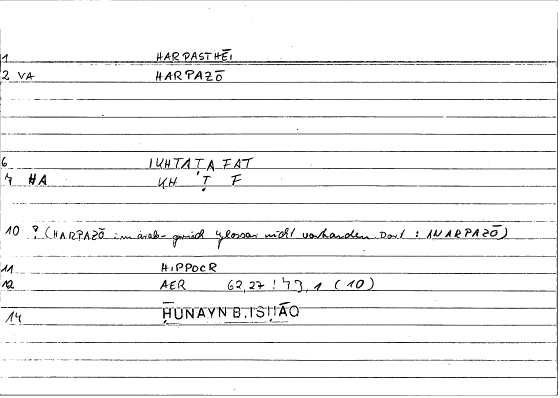 1 HARPASTHĒI
2 VA HARPAZŌ
6 IKHTAṬAFAT
7 HA KH Ṭ F
10 ? (HARPAZŌ im arab-griech Glossar nicht vorhanden Dort : ANARPAZŌ)
11 HIPPOCR
12 AER 62,27 ! 73,1 (10)
14 ḤUNAYN B.ISḤĀQ